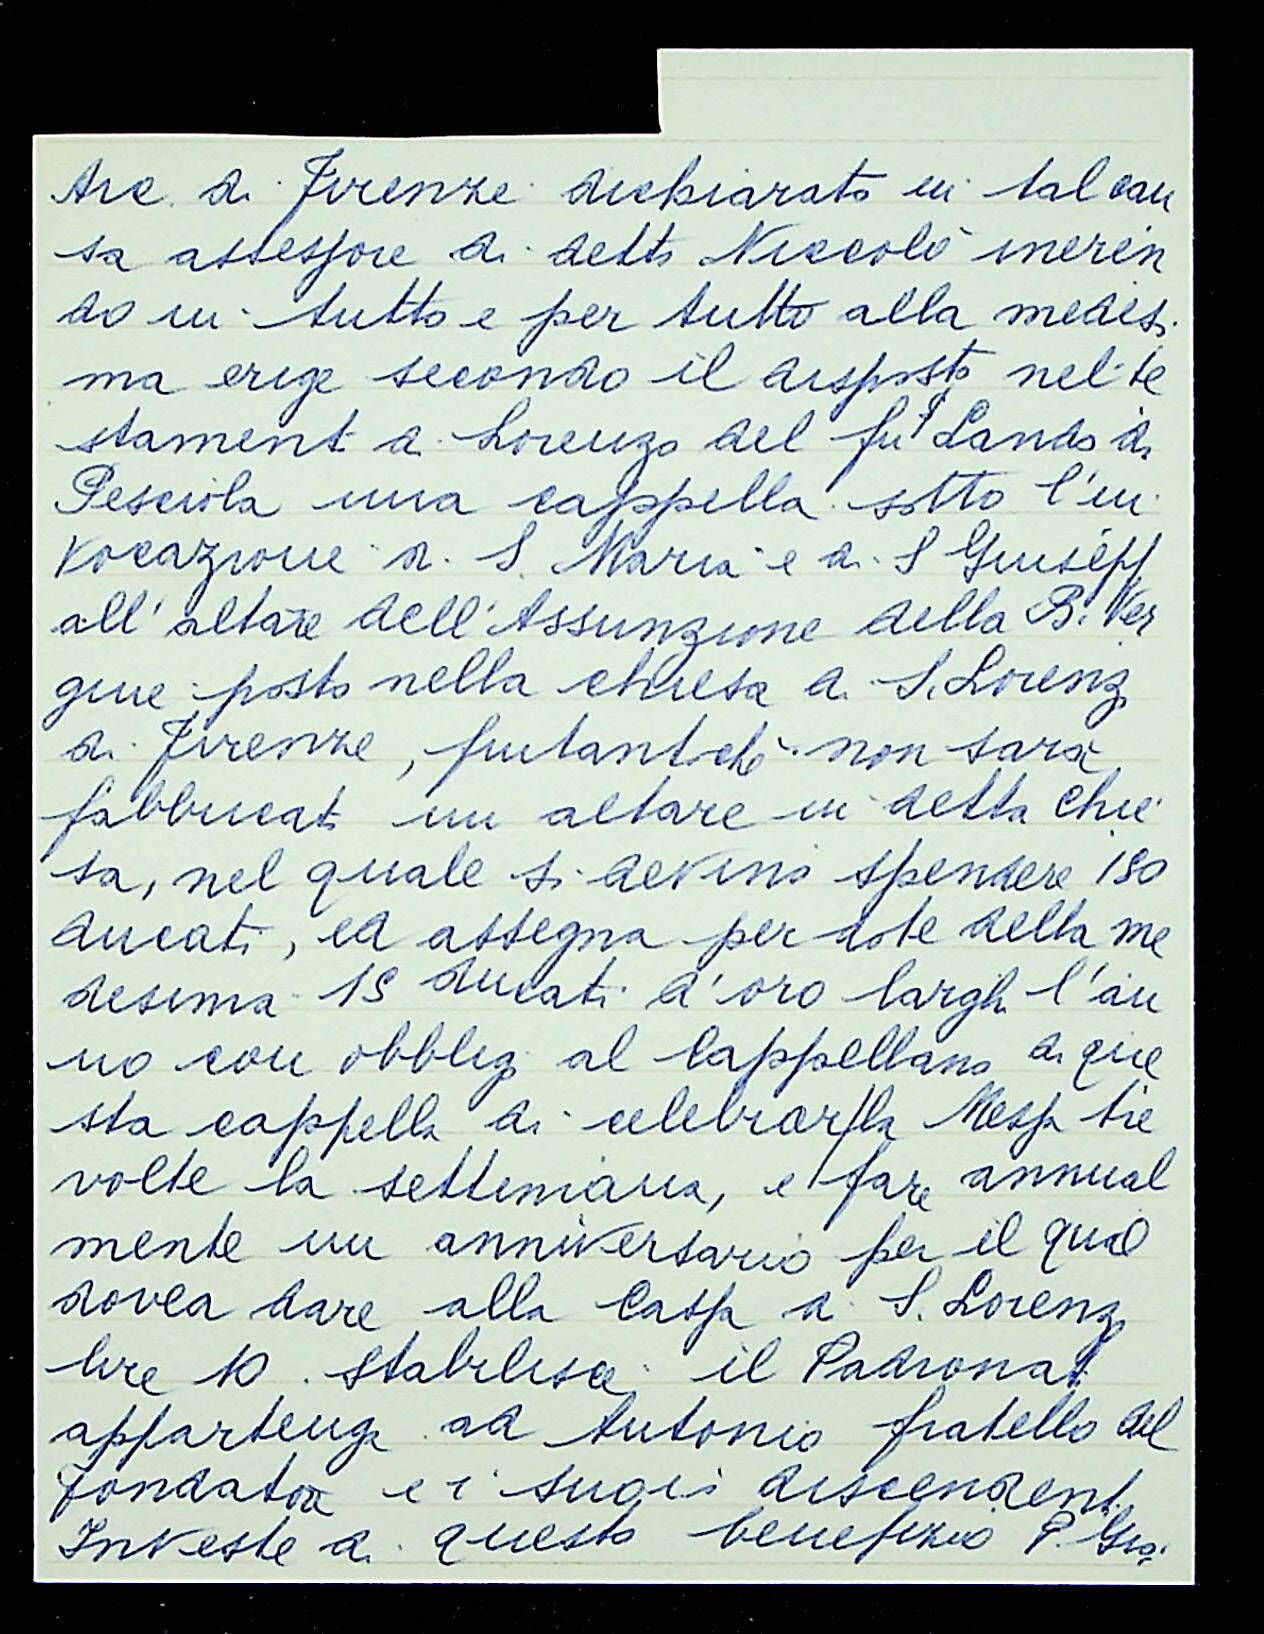 Arc. di Firenze dichiarato in tal cau
sa assessore di detto Niccolò ineren
do in tutto e per tutto alla medesi
ma erige secondo il disposto nel te
stament di Lorenzo del fu Lando di
Pesciola una cappella sotto l'in
vocazione di S. Maria e di S Giusepp
all'altare dell'Assunzione della B. Ver
gine posto nella chiesa di S. Lorenz
di Firenze, fintantochè non sarà
fabbricato un altare in detta Chie
sa, nel quale si devino spendere 180
ducati, ed assegna per dote della me
desima 15 ducati d'oro larghi l'an
no con obbligo al Cappellano di que
sta cappella di celebrar la Messa tre
volte la settimana, e fare annual
mente un anniversario per il qual
dovea dare alla Cassa di S. Lorenz
lire 10. Stabilisce il Padronato
appartenga ad Antonio fratello del
fondatore e i suoi discendenti
Investe di questo benefizio P. Gio: